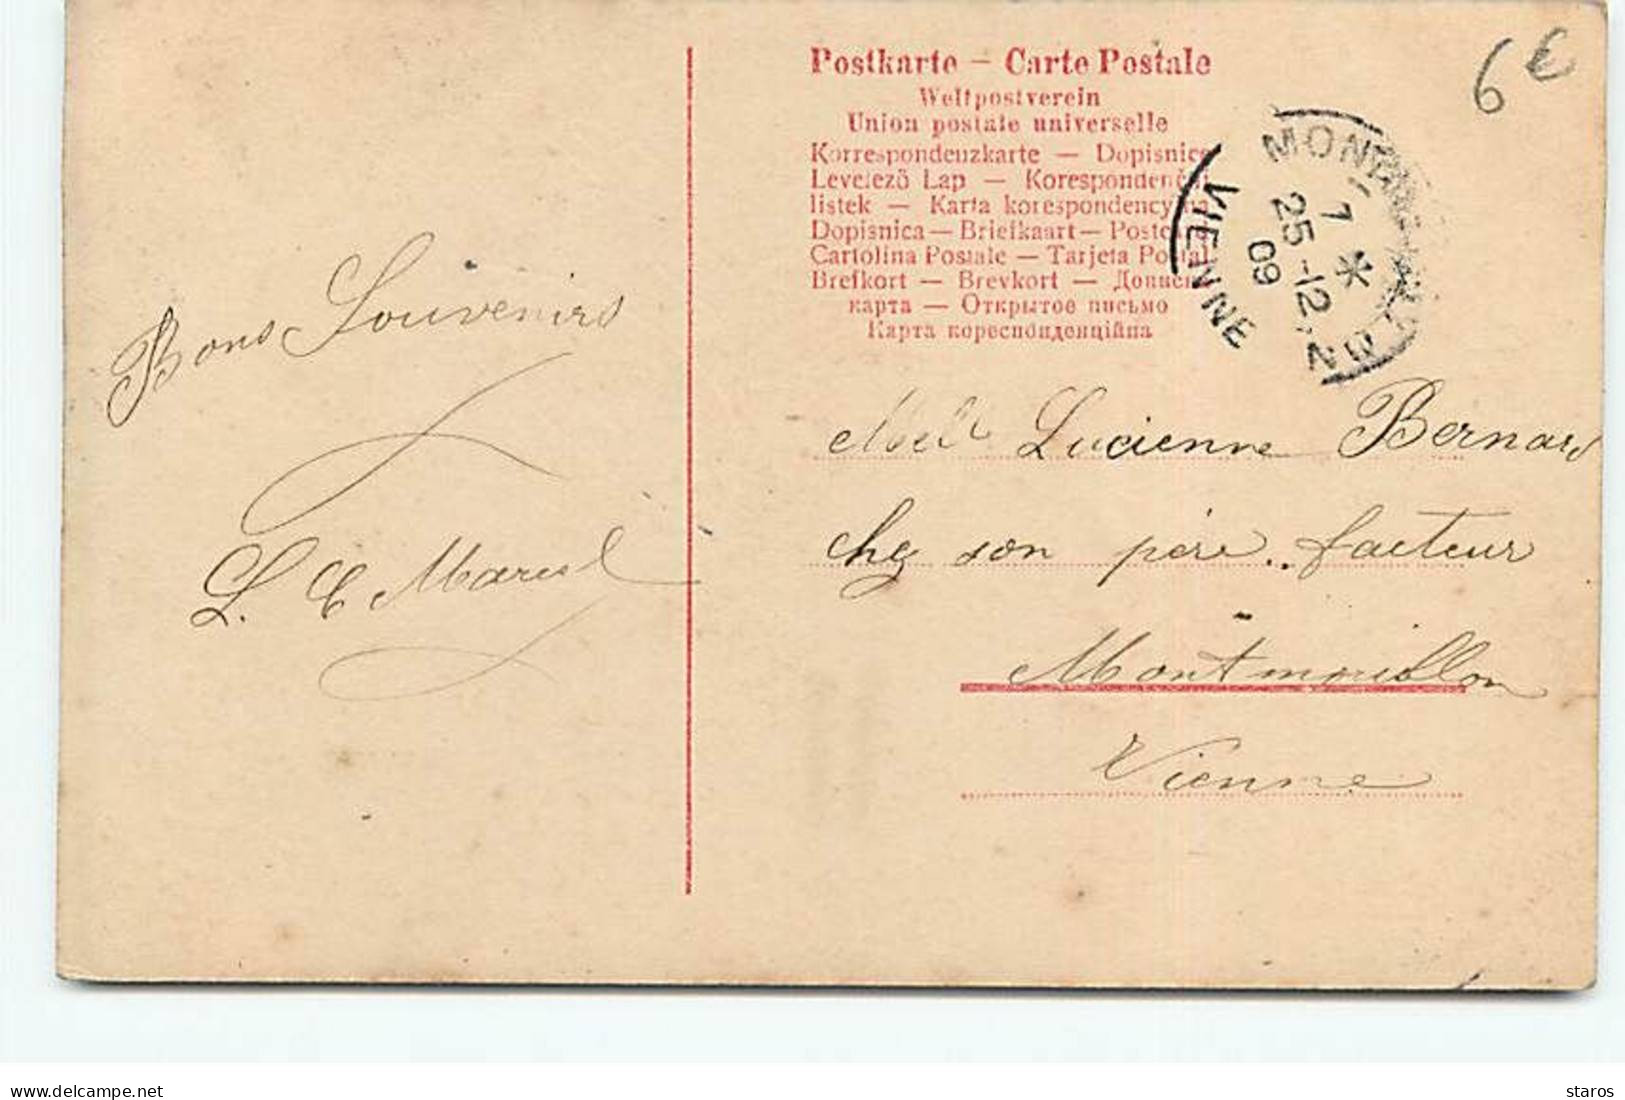 Postkarte – Carte Postale
Weltpostverein
Union postale universelle
Korrespondenzkarte — Dopisnice
Levelező Lap — Korespondenční
listek — Karta korespondencyjna
Dopisnica — Briefkaart — Postcard
Cartolina Postale — Tarjeta Postal
Brefkort — Brevkort — Дописна
карта — Открытое письмо
Карта кореспонденційна
6€
VIENNE
1 *
25-12
09
Bons Souvenirs
L. C Marcel
Melle Lucienne Bernard
chez son père.. facteur
Montmorillon
Vienne
delcampe.net
staros